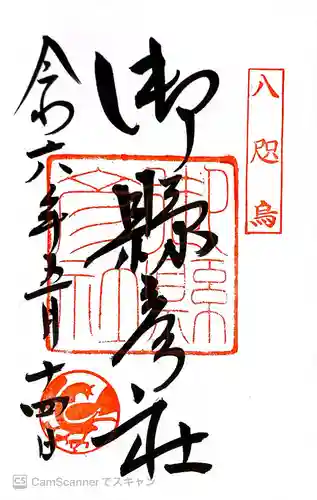 八咫烏
御縣彦社
令和六年五月十四日
御縣彦社
CS CamScannerでスキャン